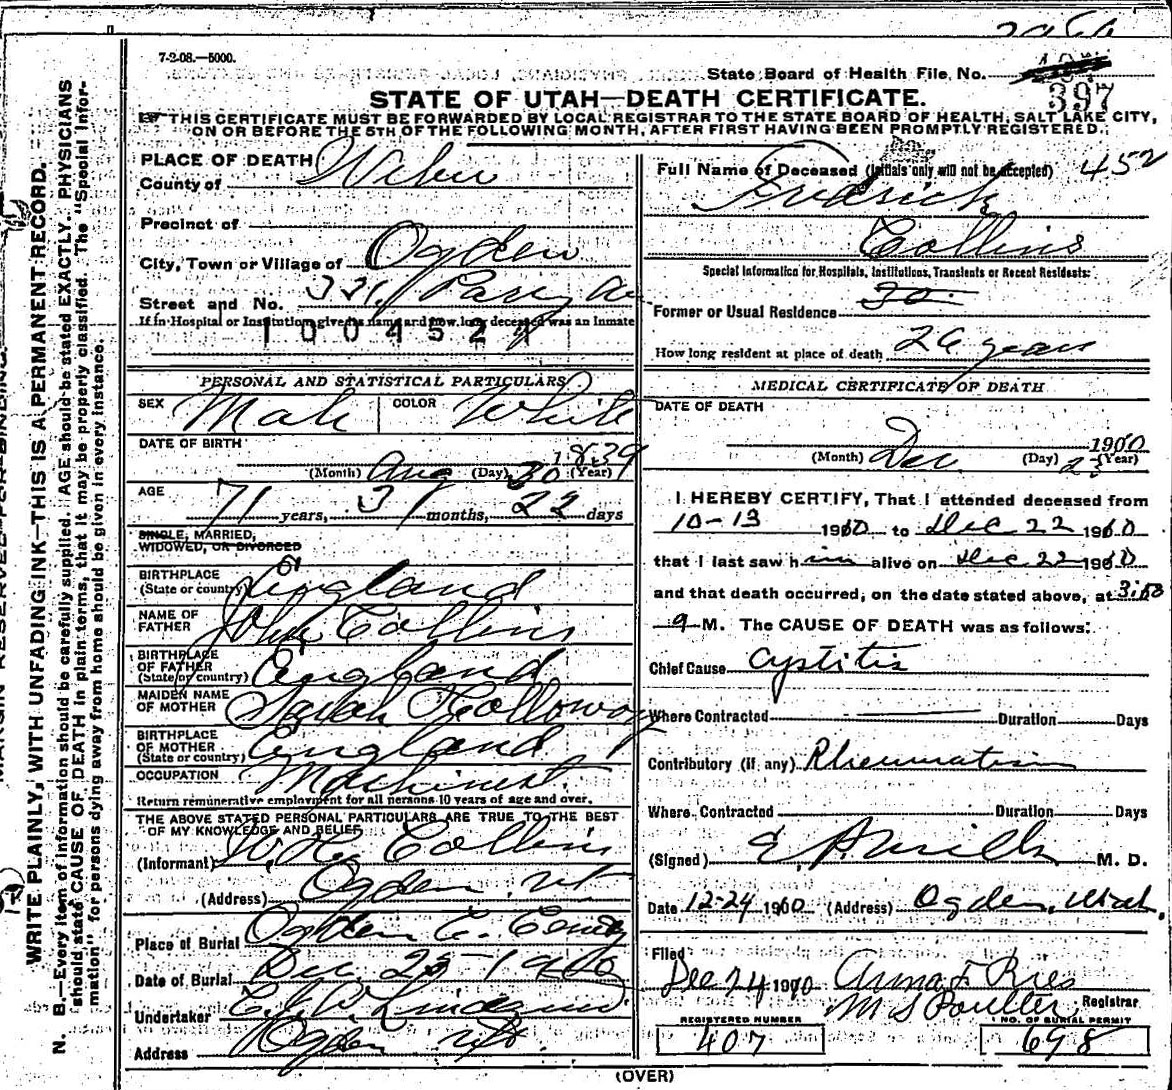 7-2-08.—5000.
State Board of Health File No. 397
STATE OF UTAH—DEATH CERTIFICATE.
THIS CERTIFICATE MUST BE FORWARDED BY LOCAL REGISTRAR TO THE STATE BOARD OF HEALTH, SALT LAKE CITY,
ON OR BEFORE THE 5TH OF THE FOLLOWING MONTH, AFTER FIRST HAVING BEEN PROMPTLY REGISTERED.
PLACE OF DEATH
County of Weber
Precinct of
City, Town or Village of Ogden
Street and No. 331
If in Hospital or Institution give its name and how long deceased was an Inmate
1004521
PERSONAL AND STATISTICAL PARTICULARS
SEX Male COLOR White
DATE OF BIRTH
Aug 30 1839
(Month) (Day) (Year)
AGE
71 years, 3 months, 22 days
SINGLE, MARRIED,
WIDOWED, OR DIVORCED
BIRTHPLACE
(State or country) England
NAME OF
FATHER Collins
BIRTHPLACE
OF FATHER
(State or country) England
MAIDEN NAME
OF MOTHER Sarah Holloway
BIRTHPLACE
OF MOTHER
(State or country) England
OCCUPATION Machinest.
Return remunerative employment for all persons 10 years of age and over.
THE ABOVE STATED PERSONAL PARTICULARS ARE TRUE TO THE BEST
OF MY KNOWLEDGE AND BELIEF
(Informant) W. H. Collins
(Address) Ogden Ut
Place of Burial Ogden C.
Date of Burial Dec 25 1910
Undertaker
Address Ogden Ut.
Full Name of Deceased (Initials only will not be accepted) 452
Fredrick
Collins
Special Information for Hospitals, Institutions, Transients or Recent Residents:
Former or Usual Residence 30
How long resident at place of death 26 years
MEDICAL CERTIFICATE OF DEATH
DATE OF DEATH
Dec 23 1910
(Month) (Day) (Year)
I HEREBY CERTIFY, That I attended deceased from
10-13 1910 to Dec 22 1910
that I last saw him alive on Dec 22 1910
and that death occurred, on the date stated above, at
M. The CAUSE OF DEATH was as follows:
Chief Cause Cystitis
Where Contracted Duration Days
Contributory (if any) Rheumatism
Where Contracted Duration Days
(Signed) M. D.
Date 12-24 1910 (Address) Ogden, Utah.
Filed
Dec 24 1910 Anna F Ries
Registrar
REGISTERED NUMBER 407
NO. OF BURIAL PERMIT 698
(OVER)
WRITE PLAINLY, WITH UNFADING INK—THIS IS A PERMANENT RECORD.
N. B.—Every item of information should be carefully supplied. AGE should be stated EXACTLY. PHYSICIANS
should state CAUSE OF DEATH in plain terms, that it may be properly classified. The "Special Infor-
mation" for persons dying away from home should be given in every instance.